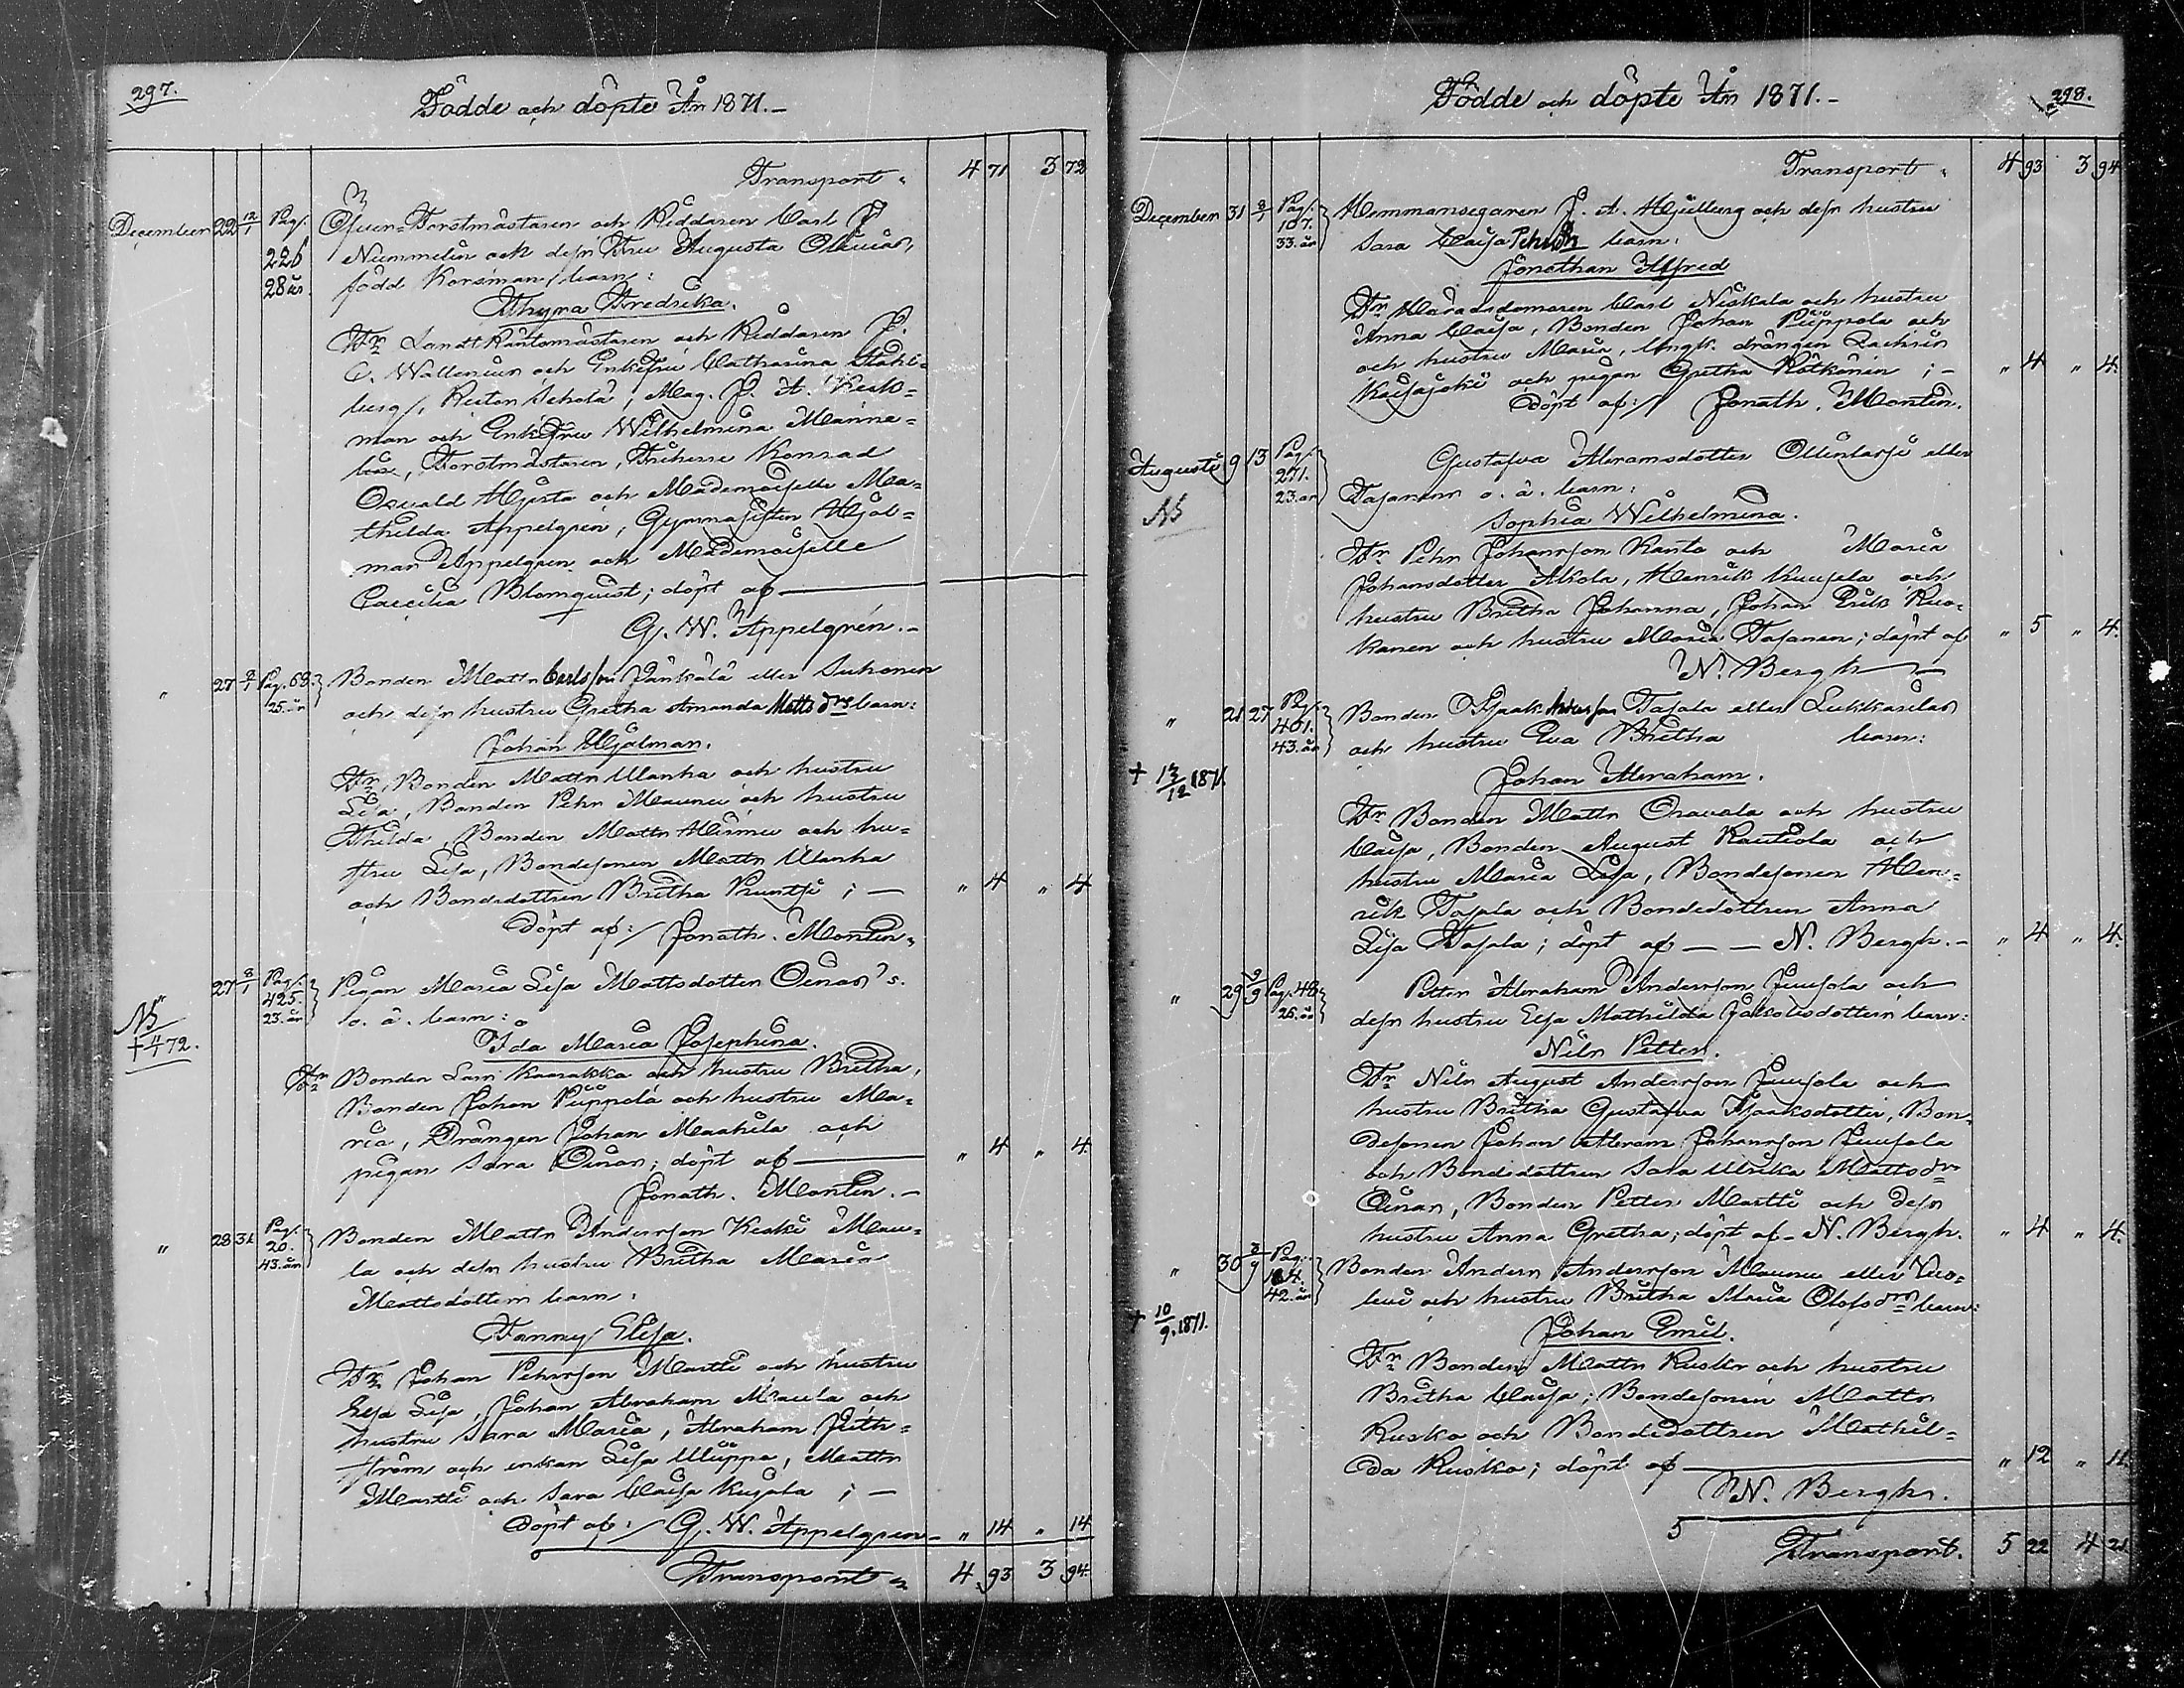 297.
Födde och döpte År 1871.-
Transport 4 71 3 72
December 22 12/1 Pag. 226 28 år.
Öfver-Forstmästaren och Riddaren Carl J
Nummelin och dess Fru Augusta
född Korsman, barn:
Thyra Fredrika.
Fr Landt Räntemästaren och Riddaren J.
C. Wallenius och Enkefru Catharina Stahl-
berg, Rector Schola, Mag. J. A. Keck-
man och Enkefru Wilhelmina Manne-
lin, Forstmästaren, Friherre Konrad
Osvald Hjerta och Mademoiselle Ma-
thilda Appelgren, Gymnasisten Hjal-
mar Appelgren och Mademoiselle
Caecilia Blomquist; döpt af
G. W. Appelgrén.-
" 27 2/1 Pag. 63. 25. år
Bonden Matts Carlsson Jänkälä eller Suhonen
och dess hustru Gretha Amanda Mattsdrs barn:
Johan Hjalmar.
Fr. Bonden Matts Ulanha och hustru
Lisa, Bonden Pehr Maunu och hustru
Thilda, Bonden Matts Hirmu och hu-
stru Lisa, Bondesonen Matts Ulanha
och Bondedottren Britha Pruntsi; - " 4 " 4
Döpt af:/ Jonath. Montin.
" 27 8/1 Pag. 425. 23. år
Pigan Maria Lisa Mattsdotter Oinas's.
o. ä. barn:
NB
+ 4/11 72.
Ida Maria Josephina.
Fr Bonden Lars Kaarakka och hustru Britha,
Bonden Johan Piippola och hustru Ma-
ria, Drängen Johan Maahila och
pigan Sara Oinas; döpt af " 4 " 4
Jonath. Montin.-
" 28 31 Pag. 20. 43. år
Bonden Matts Andersson Keski Mau-
la och dess hustru Britha Maria
Mattsdotters barn:
Fanny Elisa.
Fr Johan Pehrsson Martti och hustru
Elsa Lisa, Johan Abraham Maula och
hustru Sara Maria, Abraham Frith-
ström och enkan Lisa Uliippa, Matts
Martti och Sara Caisa Kujala; -
Döpt af:/ G. W. Appelgren " 14 " 14
Transport 4 93 3 94
298.
Födde och döpte År 1871.-
Transport 4 93 3 94
December 31 8/1 Pag. 107. 33. år
Hemmansegaren J. A. Hjulberg och dess hustru
Sara Caisa Pehrsdr barn:
Jonathan Alfred
Fr Häradsdomaren Carl Niskala och hustru
Anna Caisa, Bonden Johan Piippola och
och hustru Maria, Ungk. drängen Zachris
Kaisajoki och pigan Gretha Rötkönen; - " 4 " 4.
Döpt af:/ Jonath. Montin.
Augusti 9 13 Pag. 271. 23. år
NB
Gustafva Abramsdotter Ollinlarsi eller
Tasanen o. ä. barn:
Sophia Wilhelmina.
Fr Pehr Johansson Kanto och Maria
Johansdotter Alkola, Henrik Kuusela och
hustru Britha Johanna, Johan Erik Ruo-
kanen och hustru Maria Tasanen; döpt af " 5 " 4.
N. Bergh
" 21 27 Pag. 401. 43. år
Bonden Isaak Andersson Tasala eller Lukkarilas
och hustru Eva Britha barn:
+ 13/12 1871.
Johan Abraham.
Fr Bonden Matts Oravala och hustru
Caisa, Bonden August Rautiola och
hustru Maria Lisa, Bondesonen Hen-
rik Tasala och Bondedottren Anna
Lisa Tasala; döpt af - - N. Bergh.- " 4 " 4.
" 29 3/9 Pag. 48 26. år
Petter Abraham Andersson Juusola och
dess hustru Elsa Mathilda Jakobsdotters barn:
Nils Petter.
Fr Nils August Andersson Juusola och
hustru Britha Gustafva Isaaksdotter, Bon-
desonen Johan Abram Johansson Juusola
och Bondedottren Sara Ulrika Mattsdr
Oinas, Bonden Petter Martti och dess
hustru Anna Gretha; döpt af - N. Bergh. " 4 " 4.
" 30 3/9 Pag. 42. år
Bonden Anders Andersson Maunu eller Vuo-
levi och hustru Britha Maria Olofsdrs barn:
+ 10/9 1871.
Johan Emil.
Fr Bonden Matts Rusko och hustru
Britha Caisa; Bondesonen Matts
Rusko och Bondedottren Mathil-
da Rusko; döpt af " 12 " 11.
N. Bergh.
5
Transport. 5 22 4 21